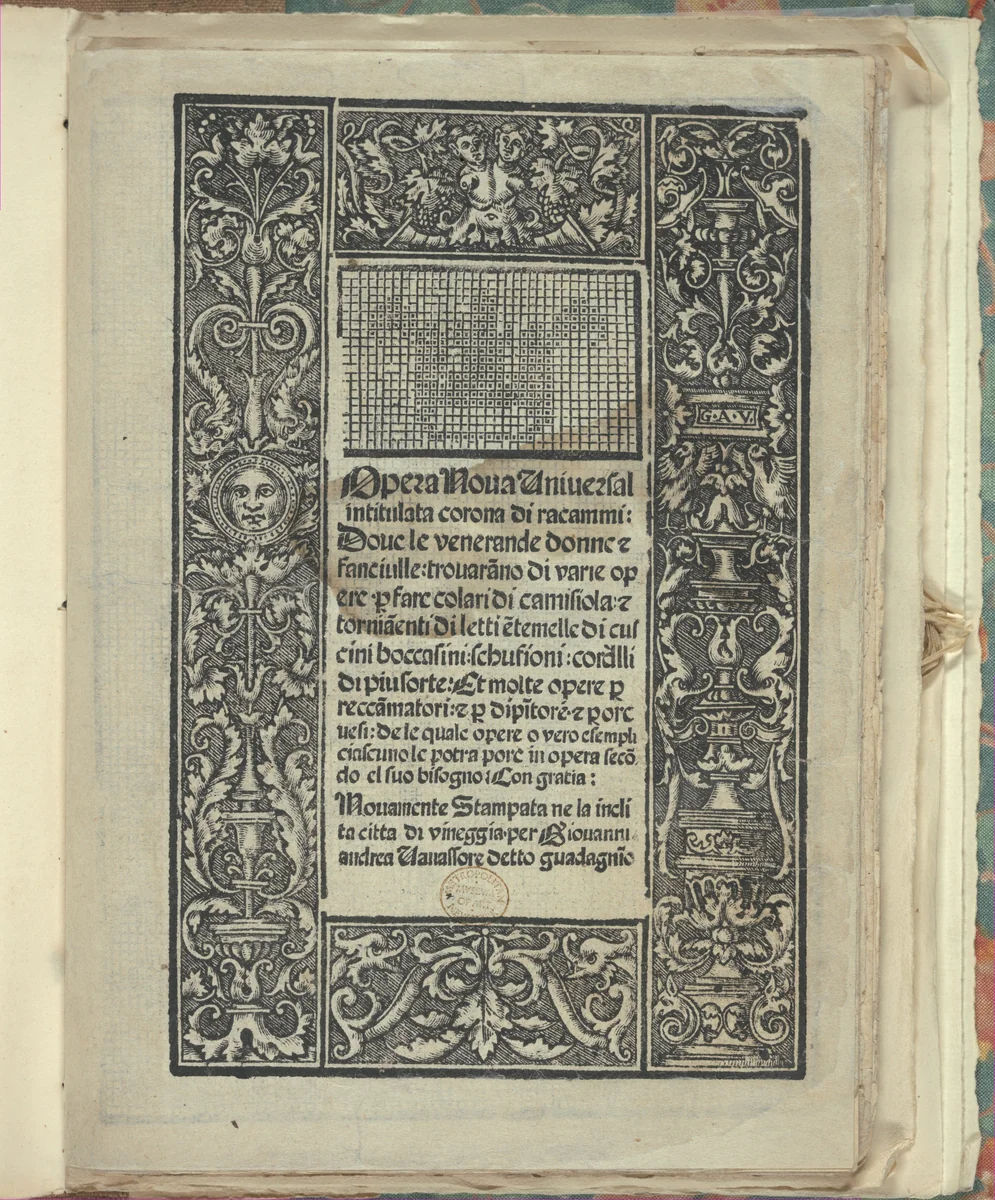 G·A·V·
Opera Noua Uniuersal
intitulata corona di racammi:
Doue le venerande donne ⁊
fanciulle: trouarãno di varie op
ere ꝑ fare colari di camisiola: ⁊
torniãenti di letti ẽtemelle di cus
cini boccasini: schufioni: cordlli
di piu sorte: Et molte opere ꝑ
reccãmatori: ⁊ ꝑ dipĩtore ⁊ ꝑ ore
uesi: de le quale opere o vero esempli
ciascuno le potra pore in opera secõ
do el suo bisogno: Con gratia:
Nouamente Stampata ne la incli
ta citta di vineggia per Giouanni
andrea Uauassore detto guadagnĩo
METROPOLITAN
MUSEUM
OF ART